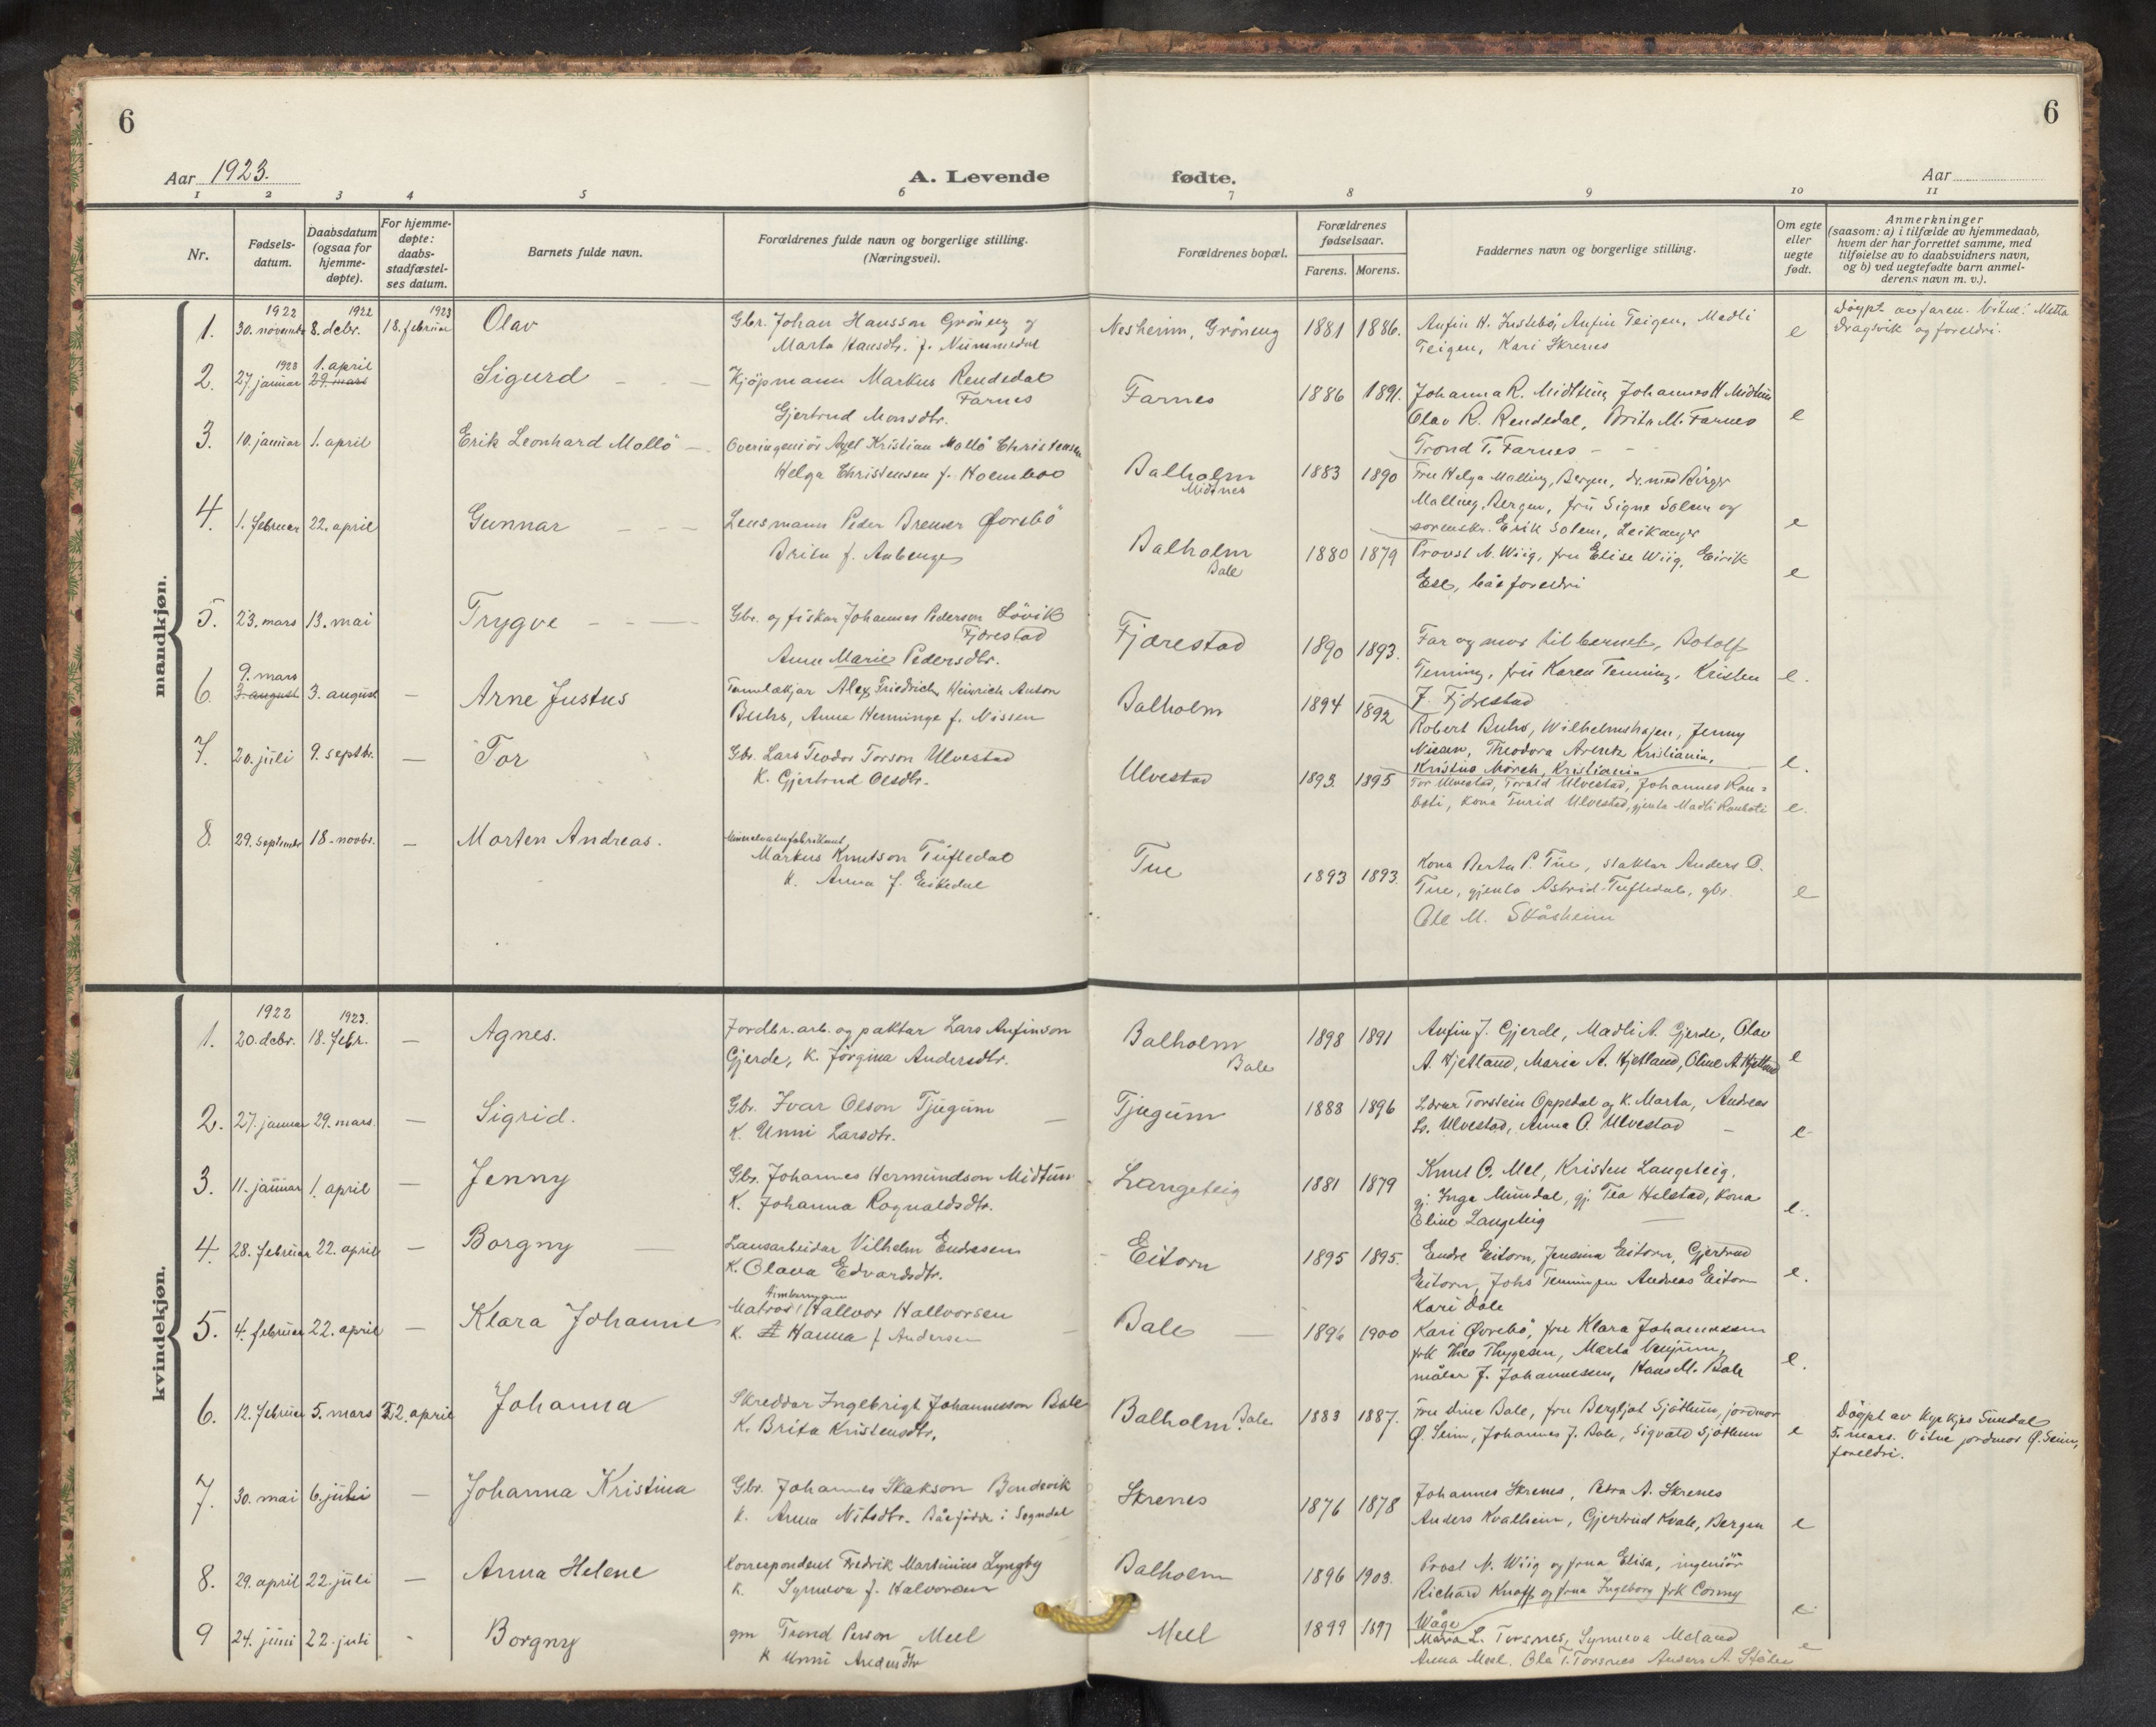 6
6
Aar 1923.
A. Levende
fødte.
Aar
1 2 3 4 5 6 7 8 9 10 11
Nr.
Fødsels-
datum.
Daabsdatum
(ogsaa for
hjemme-
døpte).
For hjemme-
døpte:
daabs-
stadfæstel-
ses datum.
Barnets fulde navn.
Forældrenes fulde navn og borgerlige stilling.
(Næringsvei).
Forældrenes bopæl.
Forældrenes
fødselsaar.
Farens. Morens.
Faddernes navn og borgerlige stilling.
Om egte
eller
uegte
født.
Anmerkninger
(saasom: a) i tilfælde av hjemmedaab,
hvem der har forrettet samme, med
tilføielse av to daabsvidners navn,
og b) ved uegtefødte barn anmel-
derens navn m. v.).
mandkjøn.
1922 1922 1923
1. 30. novembr 8. debr. 18. februar Olav
Gbr. Johan Hansson Grøneng og
Marta Hansdtr. f. Nummedal
Nesheim, Grøneng 1881 1886.
Anfin H. Indebø, Anfin Teigen, Madli
Teigen, Kari Skrenes
e
Døypt av faren. Vitne: Metta
Dragsvik og foreldri.
1923 1. april
2. 27. januar 29. mars Sigurd
Kjøpmann Markus Rendedal
Farnes
Gjertrud Monsdtr.
Farnes 1886 1891.
Johanna R. Midttun, Johannes H. Midttun
Olav R. Rendedal, Brita M. Farnes
Trond T. Farnes
e
3. 10. januar 1. april Erik Leonhard Mollö
Overingeniör Axel Kristian Mollö Christensen
Helga Christensen f. Holmboe
Balholm
Midtnes
1883 1890
Fru Helga Malling, Bergen, dr. med Birger
Malling, Bergen, fru Signe Solem og
sorenskr. Erik Solem, Leikanger
e
4. 1. februar 22. april Gunnar
Lensmann Peder Bremer Øvrebö
Brita f. Aaberge
Balholm
Bale
1880 1879
Provst N. Wiig, fru Elise Wiig, Eirik
Ese, båe foreldri
e
5. 23. mars 13. mai Trygve
Gbr. og fiskar Johannes Pederson Lövik
Fjærestad
Anne Marie Pedersdtr.
Fjærestad 1890 1893.
Far og mor til barnet, Botolf
Tenning, fru Karen Tenning, Kristen
J. Fjærestad
e.
9. mars
6. 3. august 3. august Arne Justus
Tannlækjar Alex Friedrich Heinrich Anton
Buhs, Anna Henninge f. Nissen
Balholm 1894 1892
Robert Buhs, Wilhelmshafen, Jenny
Nissen, Theodora Arentz Kristiania,
Kristine Mörch, Kristiania
e.
7. 20. juli 9. septbr. Tor
Gbr. Lars Teodor Torson Ulvestad
K. Gjertrud Olsdtr.
Ulvestad 1893. 1895
Tor Ulvestad, Torald Ulvestad, Johannes
Kona Turid Ulvestad, gjenta Madli
e.
8. 29. septembr 18. novbr. Morten Andreas.
Mineralvatnfabrikant
Markus Knutson Tuftedal
K. Anna f. Eikedal
Tue 1893 1893.
Kona Berta P. Tue, slaktar Anders O.
Tue, gjenta Astrid Tuftedal, gbr.
Ole M. Skåsheim
e
kvindekjøn.
1922 1923.
1. 20. debr. 18. febr. Agnes.
Jordbr. arb. og paktar Lars Anfinson
Gjerde, K. Jörgina Andersdtr.
Balholm
Bale
1898 1891
Anfin J. Gjerde, Madli A. Gjerde, Olav
A. Hjetland, Marie A. Hjetland, Oline A. Hjetland
e
2. 27. januar 29. mars. Sigrid.
Gbr. Ivar Olson Tjugum
K. Unni Larsdtr.
Tjugum 1888 1896
Lærar Torstein Oppedal og K. Marta, Andreas
Lr. Ulvestad, Anna O. Ulvestad
e
3. 11. januar 1. april Jenny
Gbr. Johannes Hermundson Midttun
K. Johanna Ragnaldsdtr.
Langeteig 1881 1879
Knut O. Mel, Kristen Langeteig,
gj. Inga Mundal, gj. Tea Helstad, Kona
Eline Langeteig
e.
4. 28. februar 22. april Borgny
Lausarbeidar Vilhelm Endresen
K. Olava Edvardsdtr.
Eitorn 1895 1895.
Endre Eitorn, Jensina Eitorn, Gjertrud
Eitorn, Johs Tenningen Andreas Eitorn
e.
5. 4. februar 22. april Klara Johanne
Timbermann
Matros Hallvor Hallvorsen
K. Hanna f Andersen
Bale 1896 1900
Kari Dale
Kari Øvrebö, fru Klara Johannessen
frk Theo Thygesen, Marta Venjum,
målar J. Johannessen, Hans M. Bale
e.
6. 12. februar 5. mars 22. april Johanna
Skreddar Ingebrigt Johannesson Bale
K. Brita Kristensdtr.
Balholm. Bale. 1883 1887.
Fru Dine Bale, fru Bergljot Sjøttun, jordmor
Ø. Seim, Johannes J. Bale, Sigvald Sjøttum
e
Døypt av Kyrkjes Sundal
5. mars. Vitne jordmor Ø. Seim,
foreldri.
7. 30. mai 6. juli Johanna Kristina
Gbr. Johannes Skakson Bondevik
K. Anna Nilsdtr. Båe fødde i Sogndal
Skrenes 1876 1878
Johannes Skrenes, Petra A. Skrenes
Anders Kvalheim, Gjertrud Kvale, Bergen
e
8. 29. april 22. juli Anna Helene
Korrespondent Fredrik Martinius Lyngby
K. Synneva f. Halvorsen
Balholm 1896 1903.
Prost N. Wiig og frua Elisa, ingeniör
Richard Knoff og frua Ingeborg frk Conny
Wåge
e
9 24. juni 22. juli Borgny
gm Trond Person Mell
K Unni Andersdtr
Mell 1899 1897
Maria L. Torsnes, Synneva Meland
Anna Mell. Ola T. Torsnes Anders A.
e